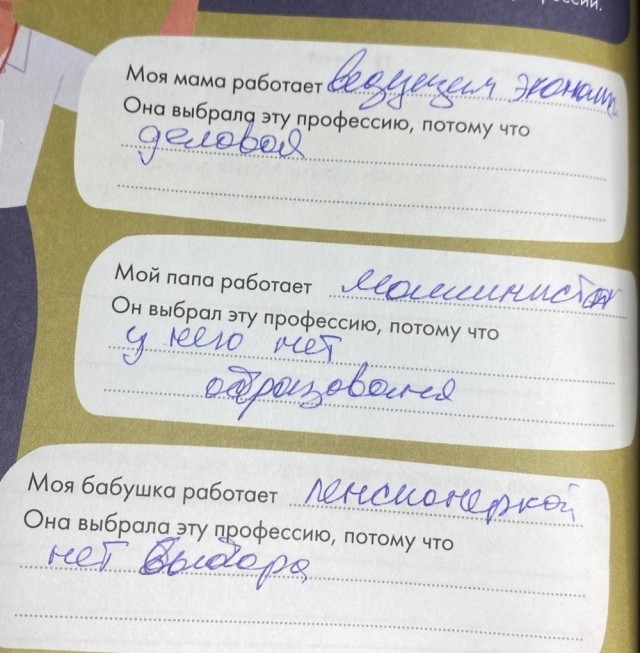 ссии.
Моя мама работает ведущем эконом
Она выбрала эту профессию, потому что
деловая
Мой папа работает машинистом
Он выбрал эту профессию, потому что
у него нет
образованя
Моя бабушка работает пенсионеркой
Она выбрала эту профессию, потому что
нет выбора